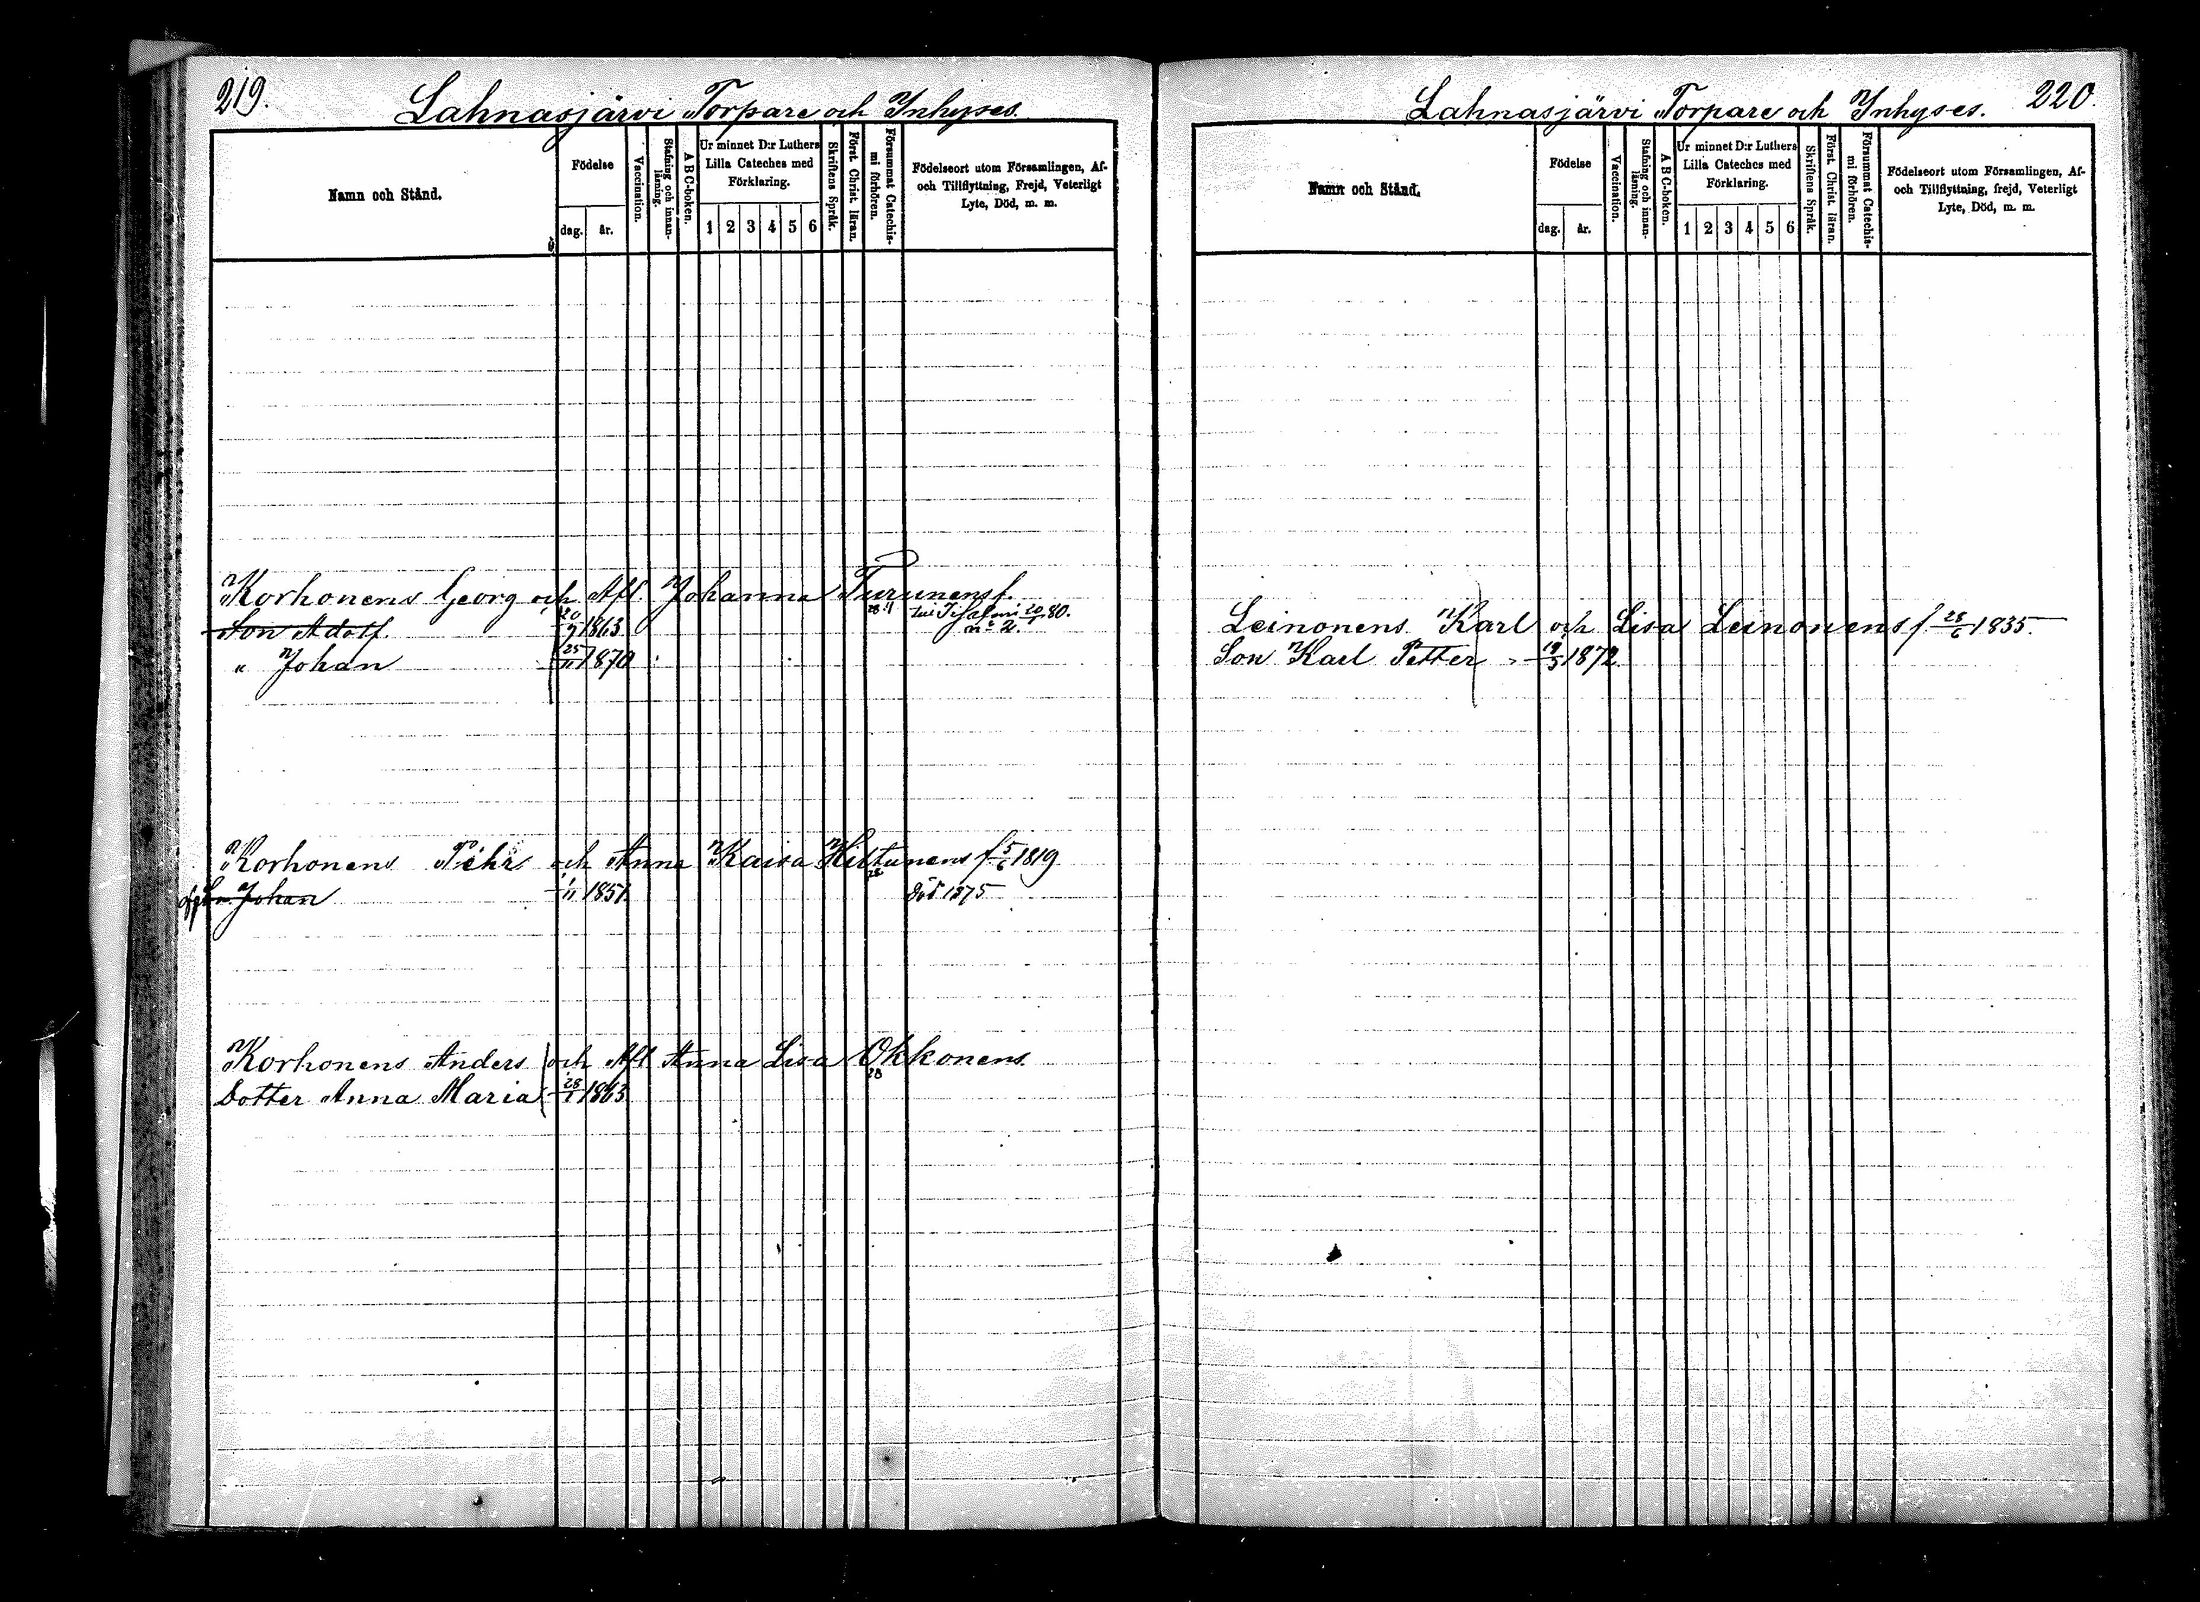 219.
Lahnasjärvi Torpare och Inhyses.
Namn och Stånd.
Födelse
dag.
år.
Vaccination.
Stafning och innan-
läsning.
ABC-boken.
Ur minnet D:r Luthers
Lilla Cateches med
Förklaring.
1 2 3 4 5 6
Skriftens Språk.
Först. Christ. läran.
Försummat Catechis-
mi förhören.
Födelseort utom Församlingen, Af-
och Tillflyttning, Frejd, Veterligt
Lyte, Död, m. m.
Korhonens Georg och Afl. Johanna Turunens f.
Son Adolf. 1863 20/1 80.
n:o 2.
" Johan 25/11 1870
Korhonens Pehr och Anna Kaisa Hiltunens f. 5/6 1819
Johan 1/11 1851 död 1875
Korhonens Anders och Afl Anna Lisa Okkonens.
28
Dotter Anna Maria 28/1 1863
220.
Lahnasjärvi Torpare och Inhyses.
Namn och Stånd.
Födelse
dag.
år.
Vaccination.
Stafning och innan-
läsning.
ABC-boken.
Ur minnet D:r Luthers
Lilla Cateches med
Förklaring.
1 2 3 4 5 6
Skriftens Språk.
Först. Christ. läran.
Försummat Catechis-
mi förhören.
Födelseort utom Församlingen, Af-
och Tillflyttning, frejd, Veterligt
Lyte, Död, m. m.
Leinonens Karl och Lisa Leinonens f. 28/6 1835.
Son Karl Petter 19/3 1872